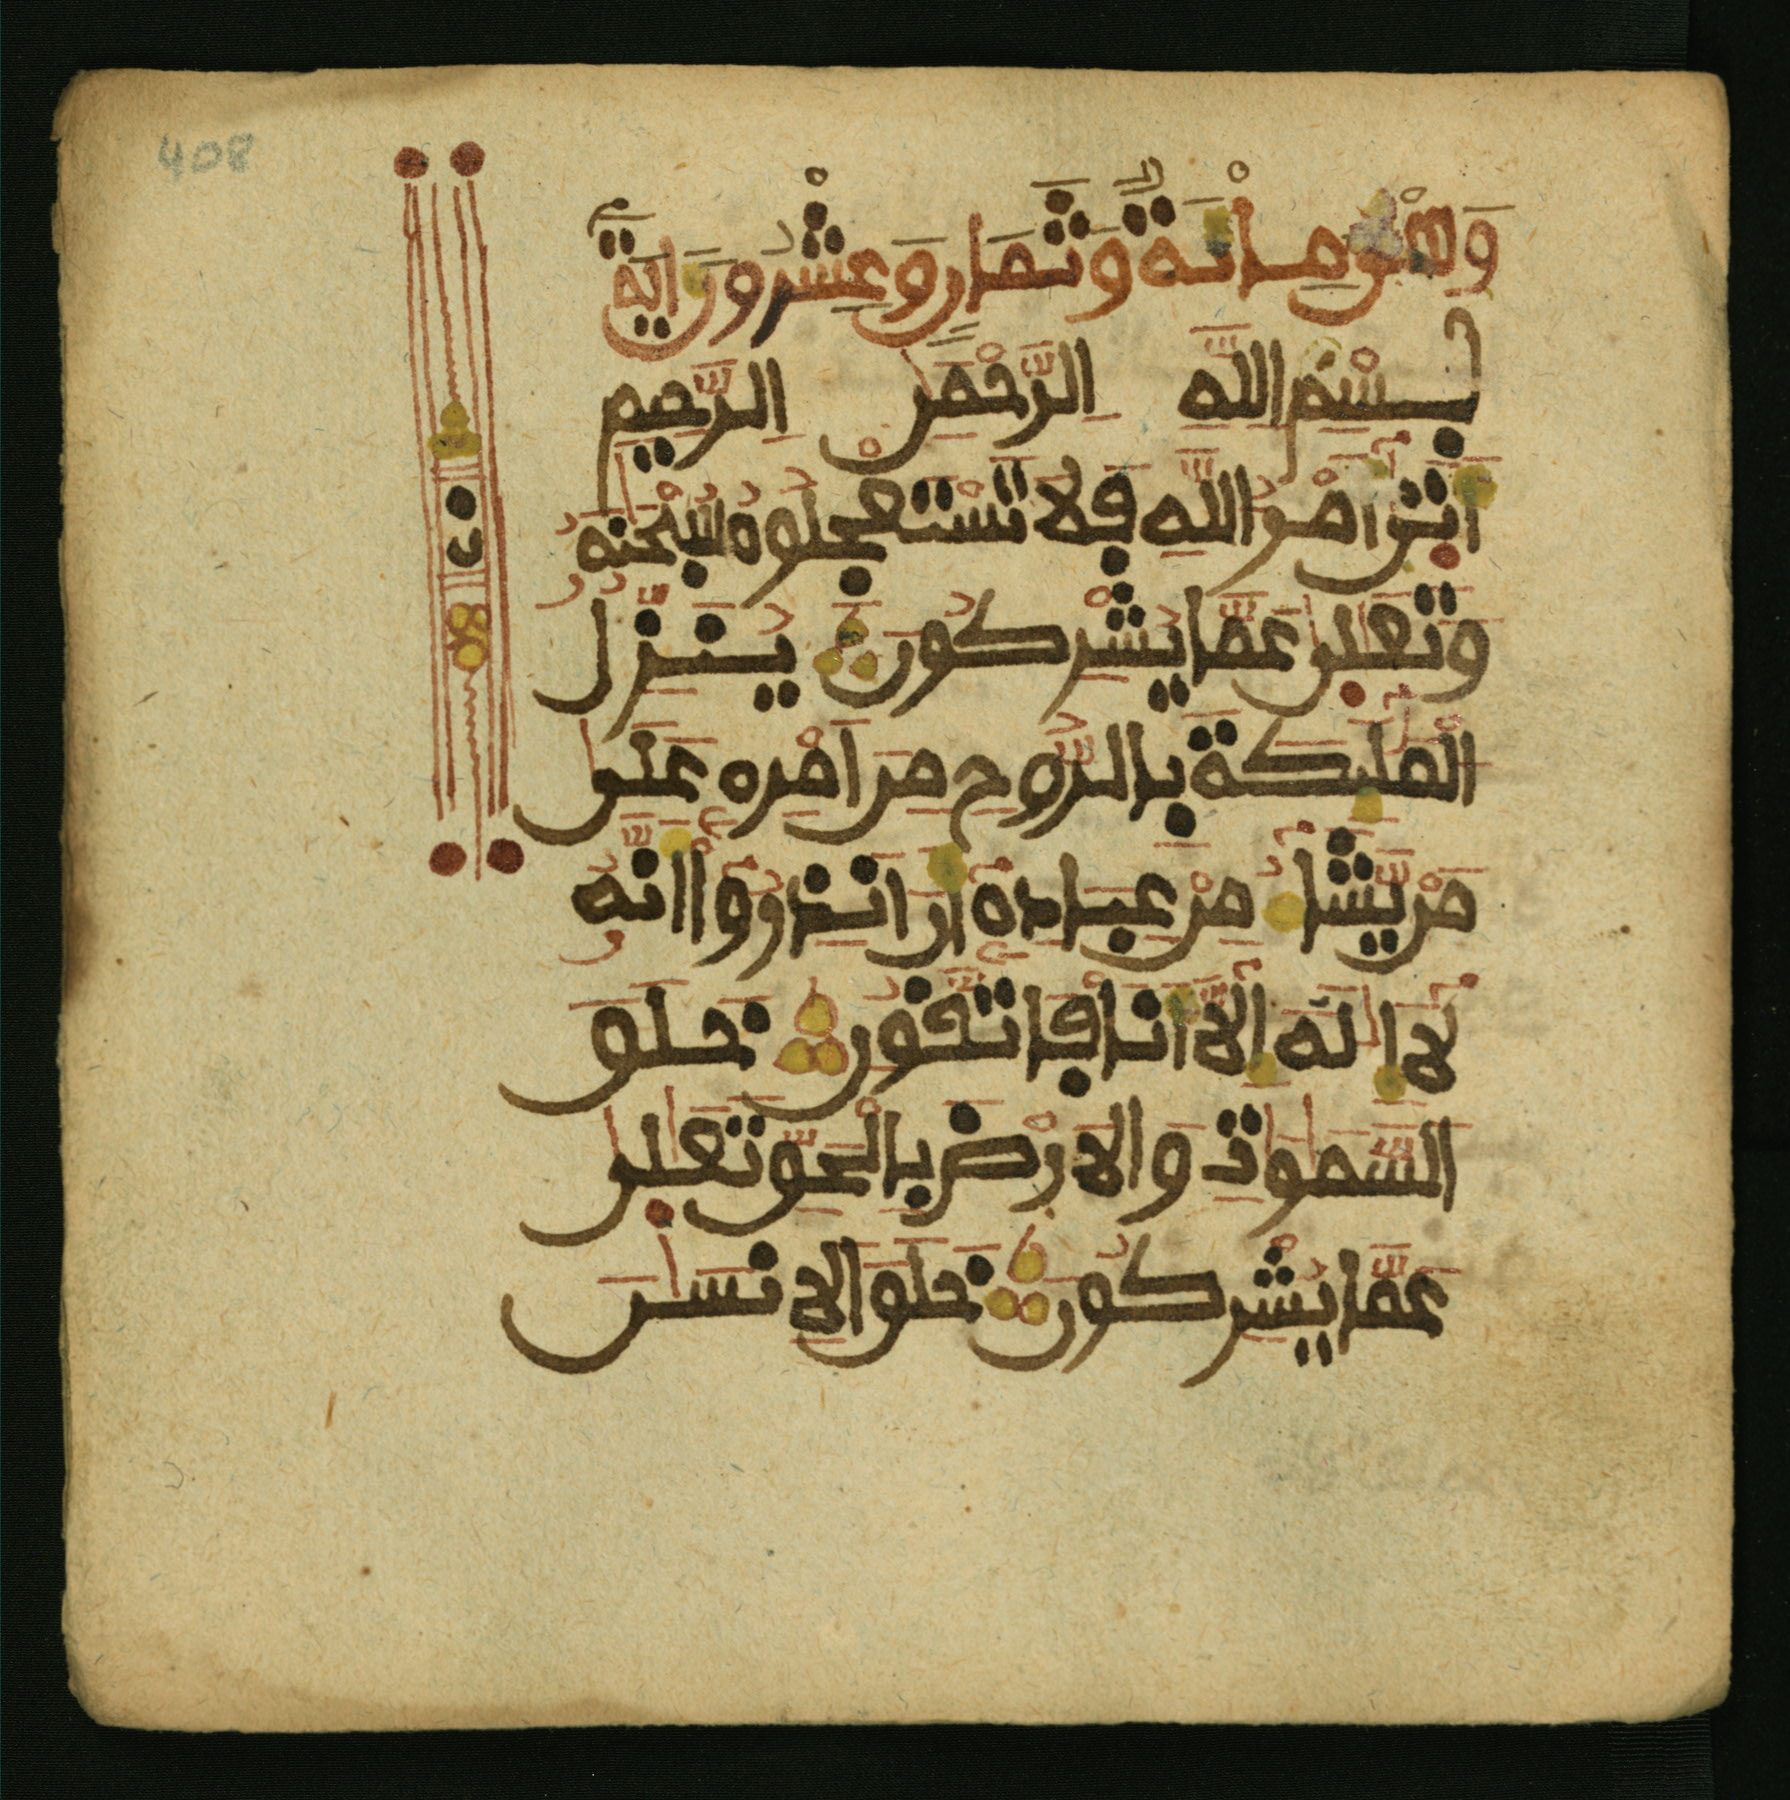 408
وَهْىَ مِائَةٌ وَثَمَانٍ وَعِشْرُونَ ايَةً
بِسْمِ اللَّهِ الرَّحْمَٰنِ الرَّحِيمِ
أَتَىٰ أَمْرُ اللَّهِ فَلَا تَسْتَعْجِلُوهُ سُبْحَٰنَهُ
وَتَعَٰلَىٰ عَمَّا يُشْرِكُونَ يُنَزِّلُ
الْمَلَٰئِكَةَ بِالرُّوحِ مِنَ امْرِهِ عَلَىٰ
مَنْ يَّشَاءُ مِنْ عِبَادِهِ أَنَ انذِرُوا أَنَّهُ
لَا إِلَٰهَ إِلَّا أَنَا فَاتَّقُونِ خَلَقَ
السَّمَٰوَٰتِ وَالَارْضَ بِالْحَقِّ تَعَٰلَىٰ
عَمَّا يُشْرِكُونَ خَلَقَ الِانسَٰنَ